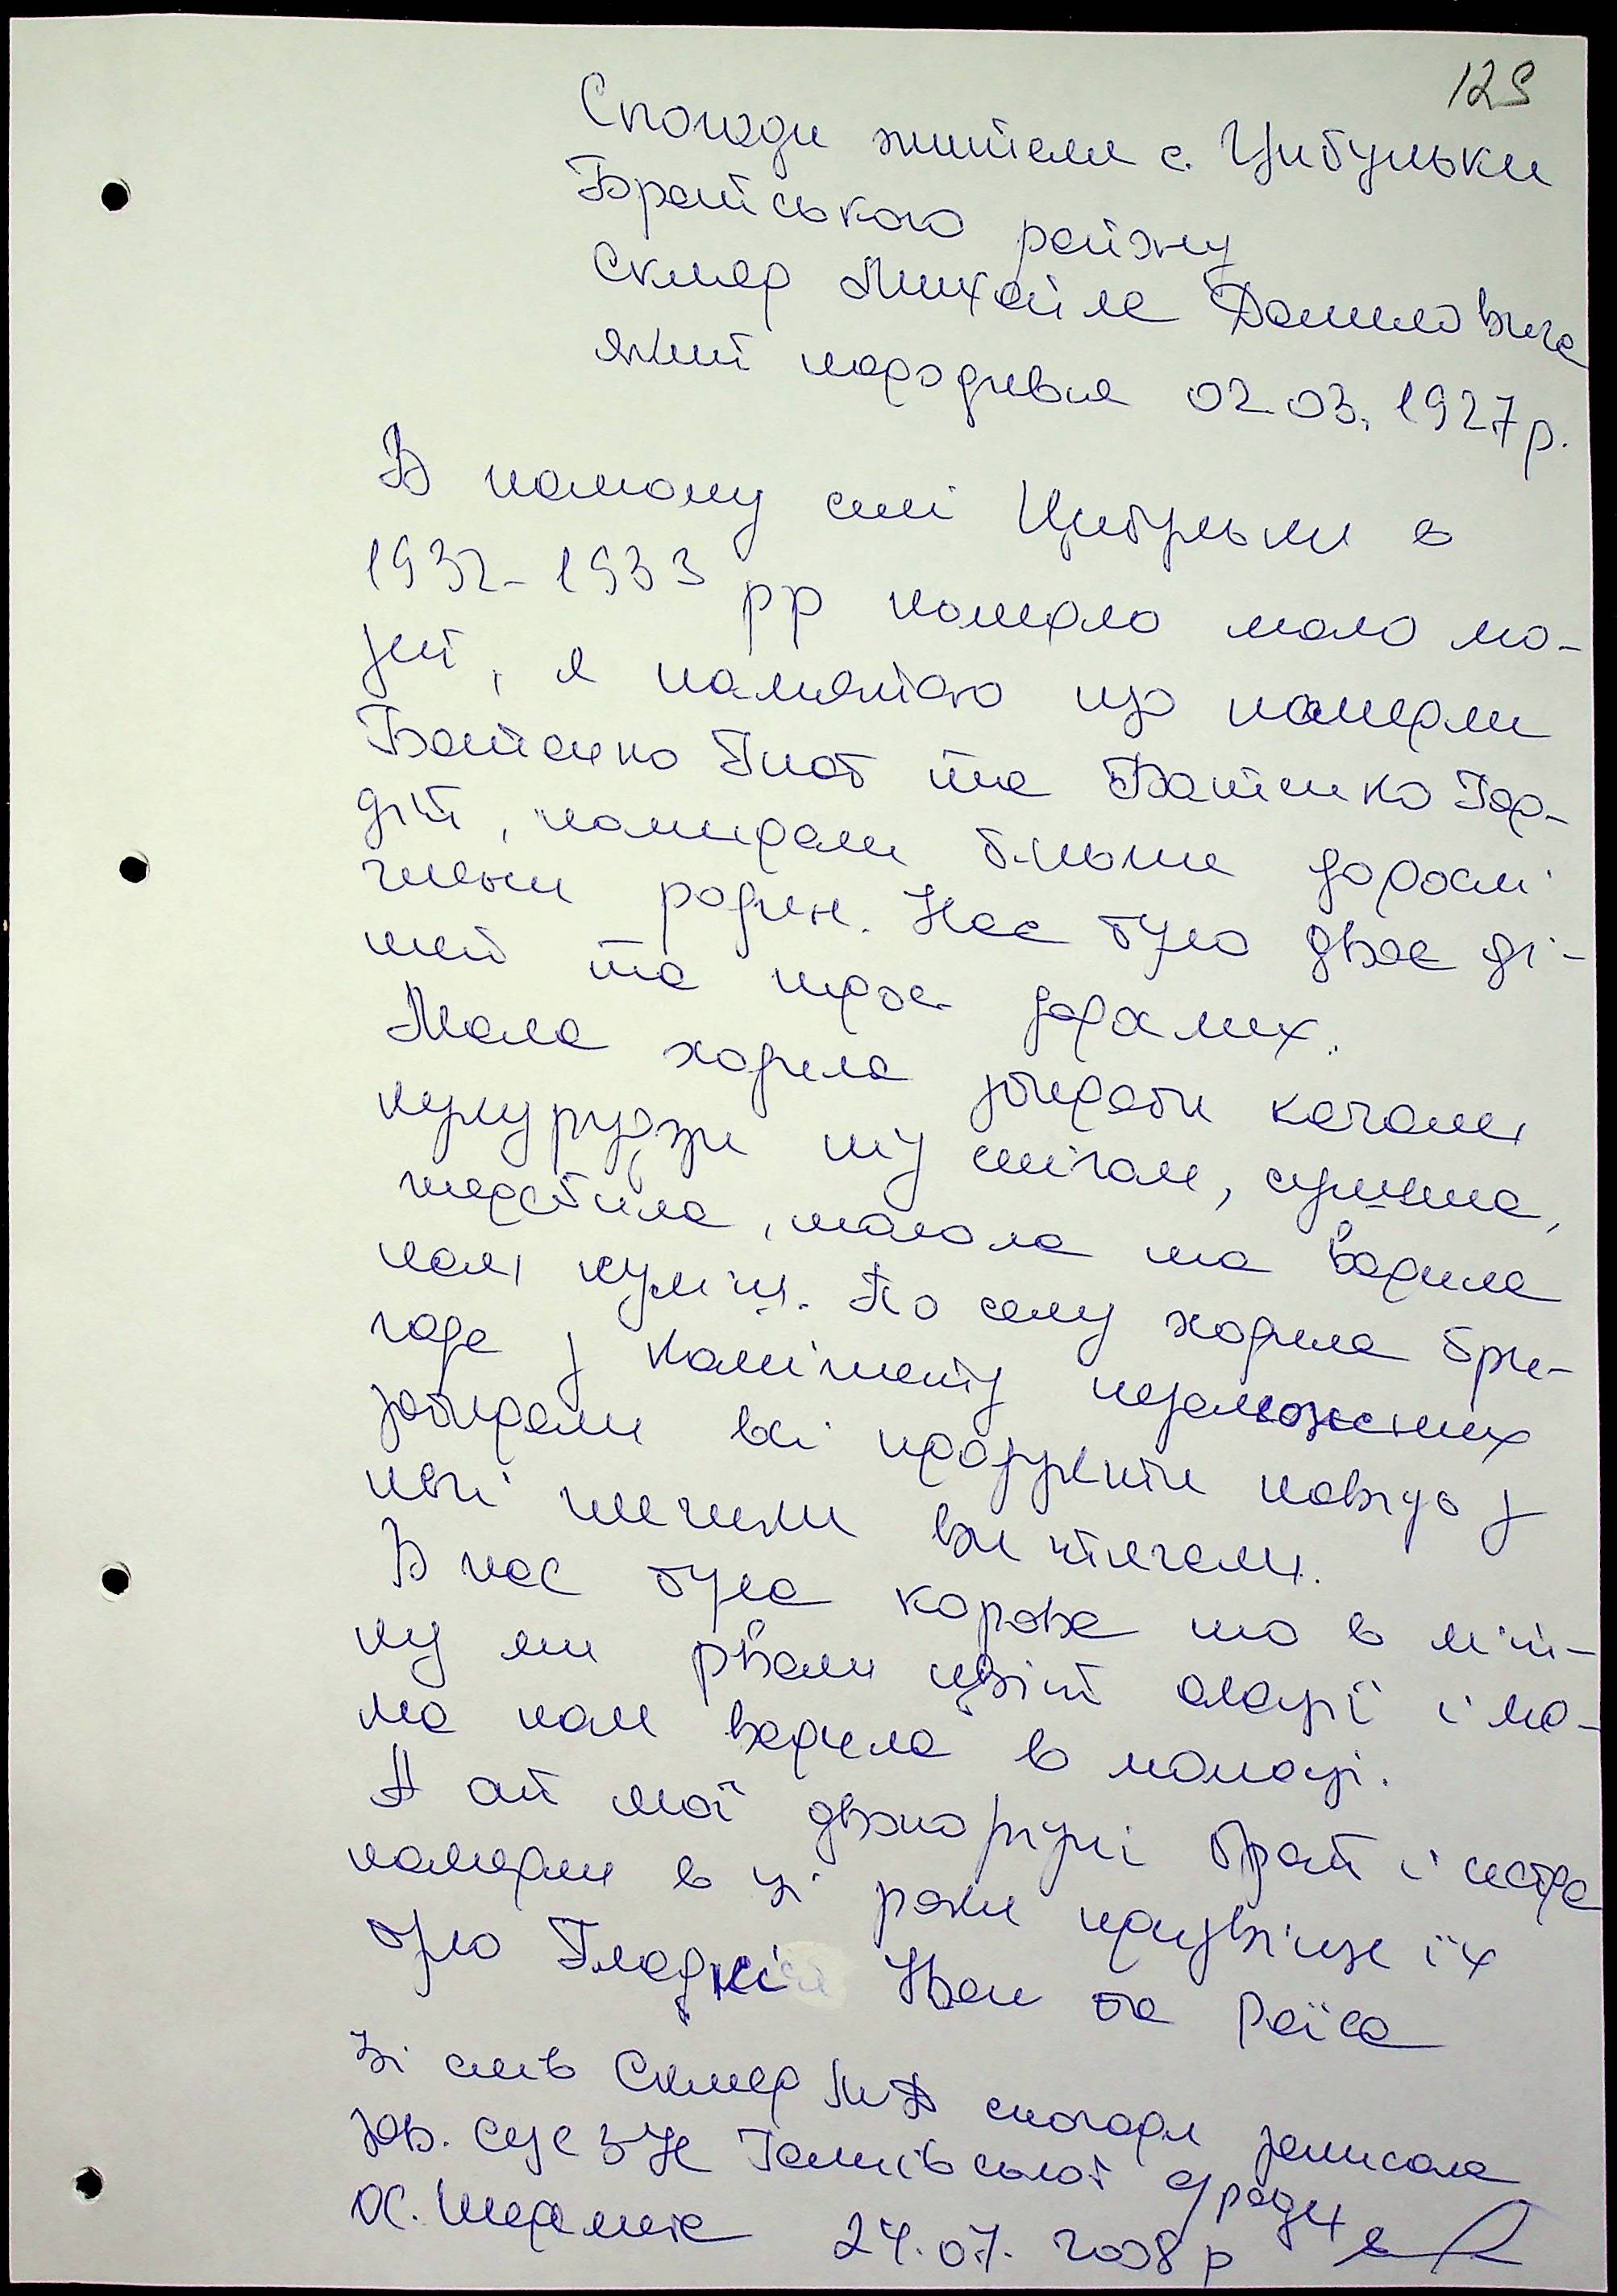 129
Спогади жителя с. Цибульки
Братського району
Скляр Михайла Даниловича
який народився 02.03.1927р.
В нашому селі Цибульки в
1932-1933 рр померло мало лю-
дей, я памятаю що померли
Батенко Гнат та Батенко Гор-
дій, помирали більше дорослі
члени родин. Нас було двоє ді-
тей та троє дорослих.
Мама ходила збирати качани
кукурудзи під снігом, сушила,
шерстила, молола та варила
нам куліш. По селу ходила бри-
гада з комітету незаможних
забирали всі продукти навідь з
печі чигуни витягали.
В нас була корова то в літ-
ку ми рвали цвіт акації і ма-
ма нам варила в молоці.
А от мої двоюрідні брат і сестра
померли в ці роки прізвище їх
було Гладкі Іван та Раїса
Зі слів Скляр МД спогади записала
зав. СУСЗН Ганнівської с/ради
24.07.2008 р